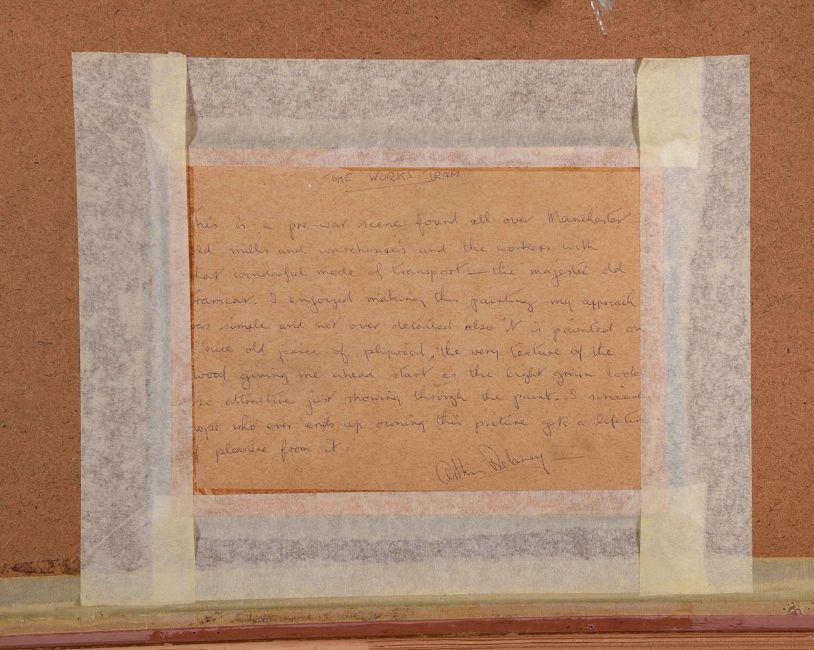 THE WORKS TRAM
his is a pre-war scene found all over Manchester
ld mills and warehouses and the workers with
hat wonderful mode of transport — the majestic old
ramcar. I enjoyed making this painting my approach
as simple and not over detailed also it is painted on
nice old piece of plywood, the very texture of the
wood giving me ahead start as the light grain looks
so attractive just showing through the paint. I sincere
hope who ever ends up owning this picture gets a lifetim
f pleasure from it
Arthur Delaney